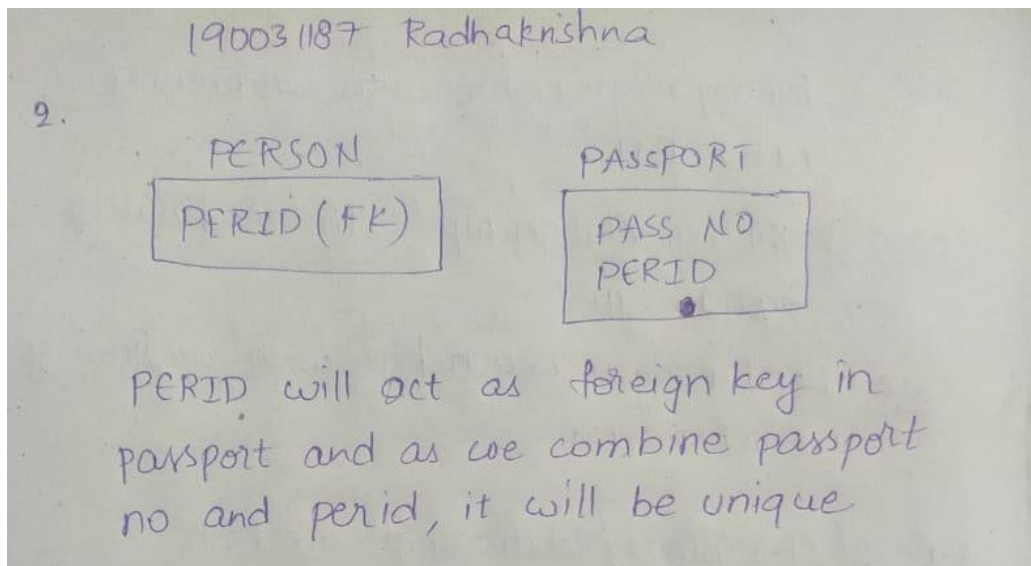 190031187 Radhakrishna
2.
PERSON
PERID (FK)
PASSPORT
PASS NO
PERID
PERID will act as foreign key in
passport and as we combine passport
no and perid, it will be unique